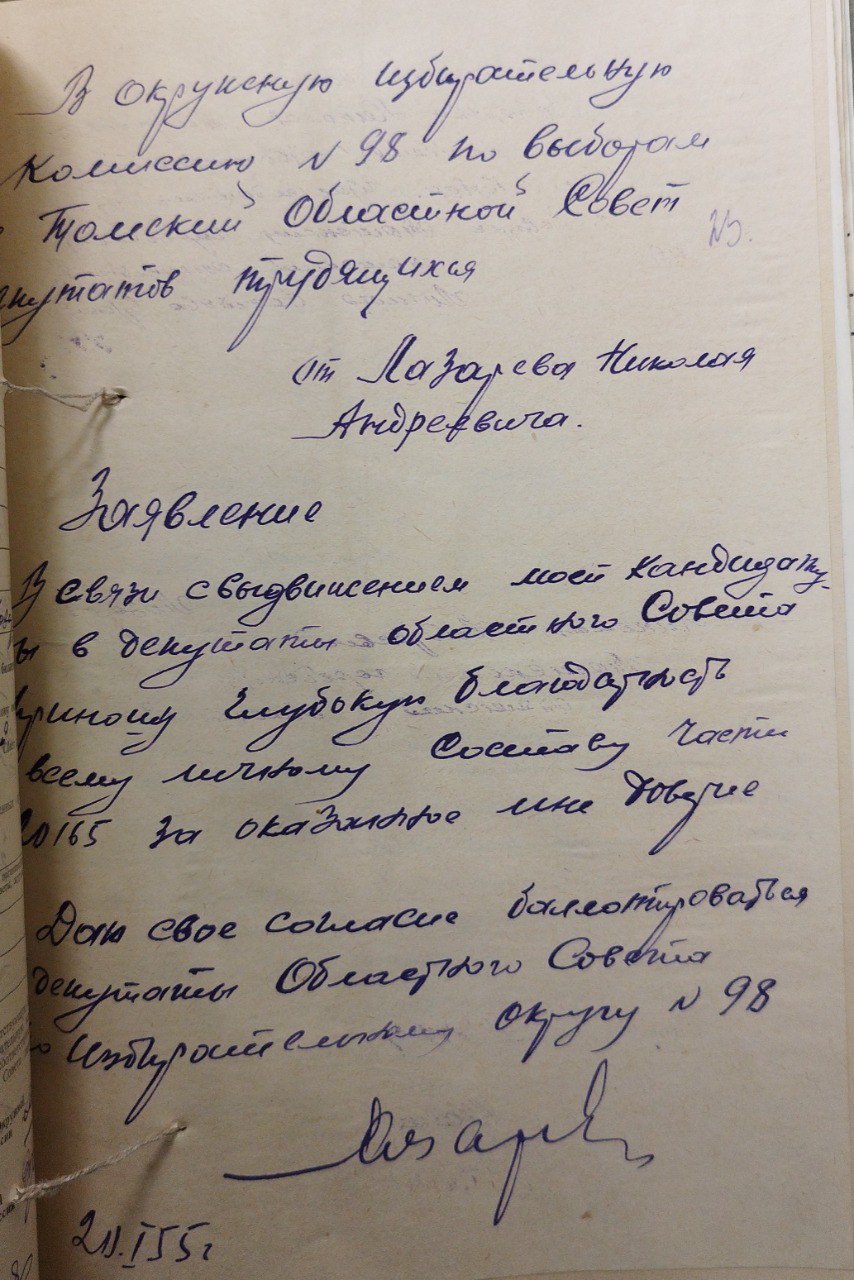 В окружную избирательную
Комиссию N 98 по выборам
Томский Областной Совет
путатов трудящихся
от Лазарева Николая
Андреевича.
Заявление
В связи с выдвижением моей кандидату-
ы в депутаты областного Совета
приношу глубокую благодарность
всему личному составу части
20165 за оказанное мне доверие
Даю свое согласие баллотироваться
депутаты Областного Совета
избирательному округу N 98
Лазарев
I 55 г